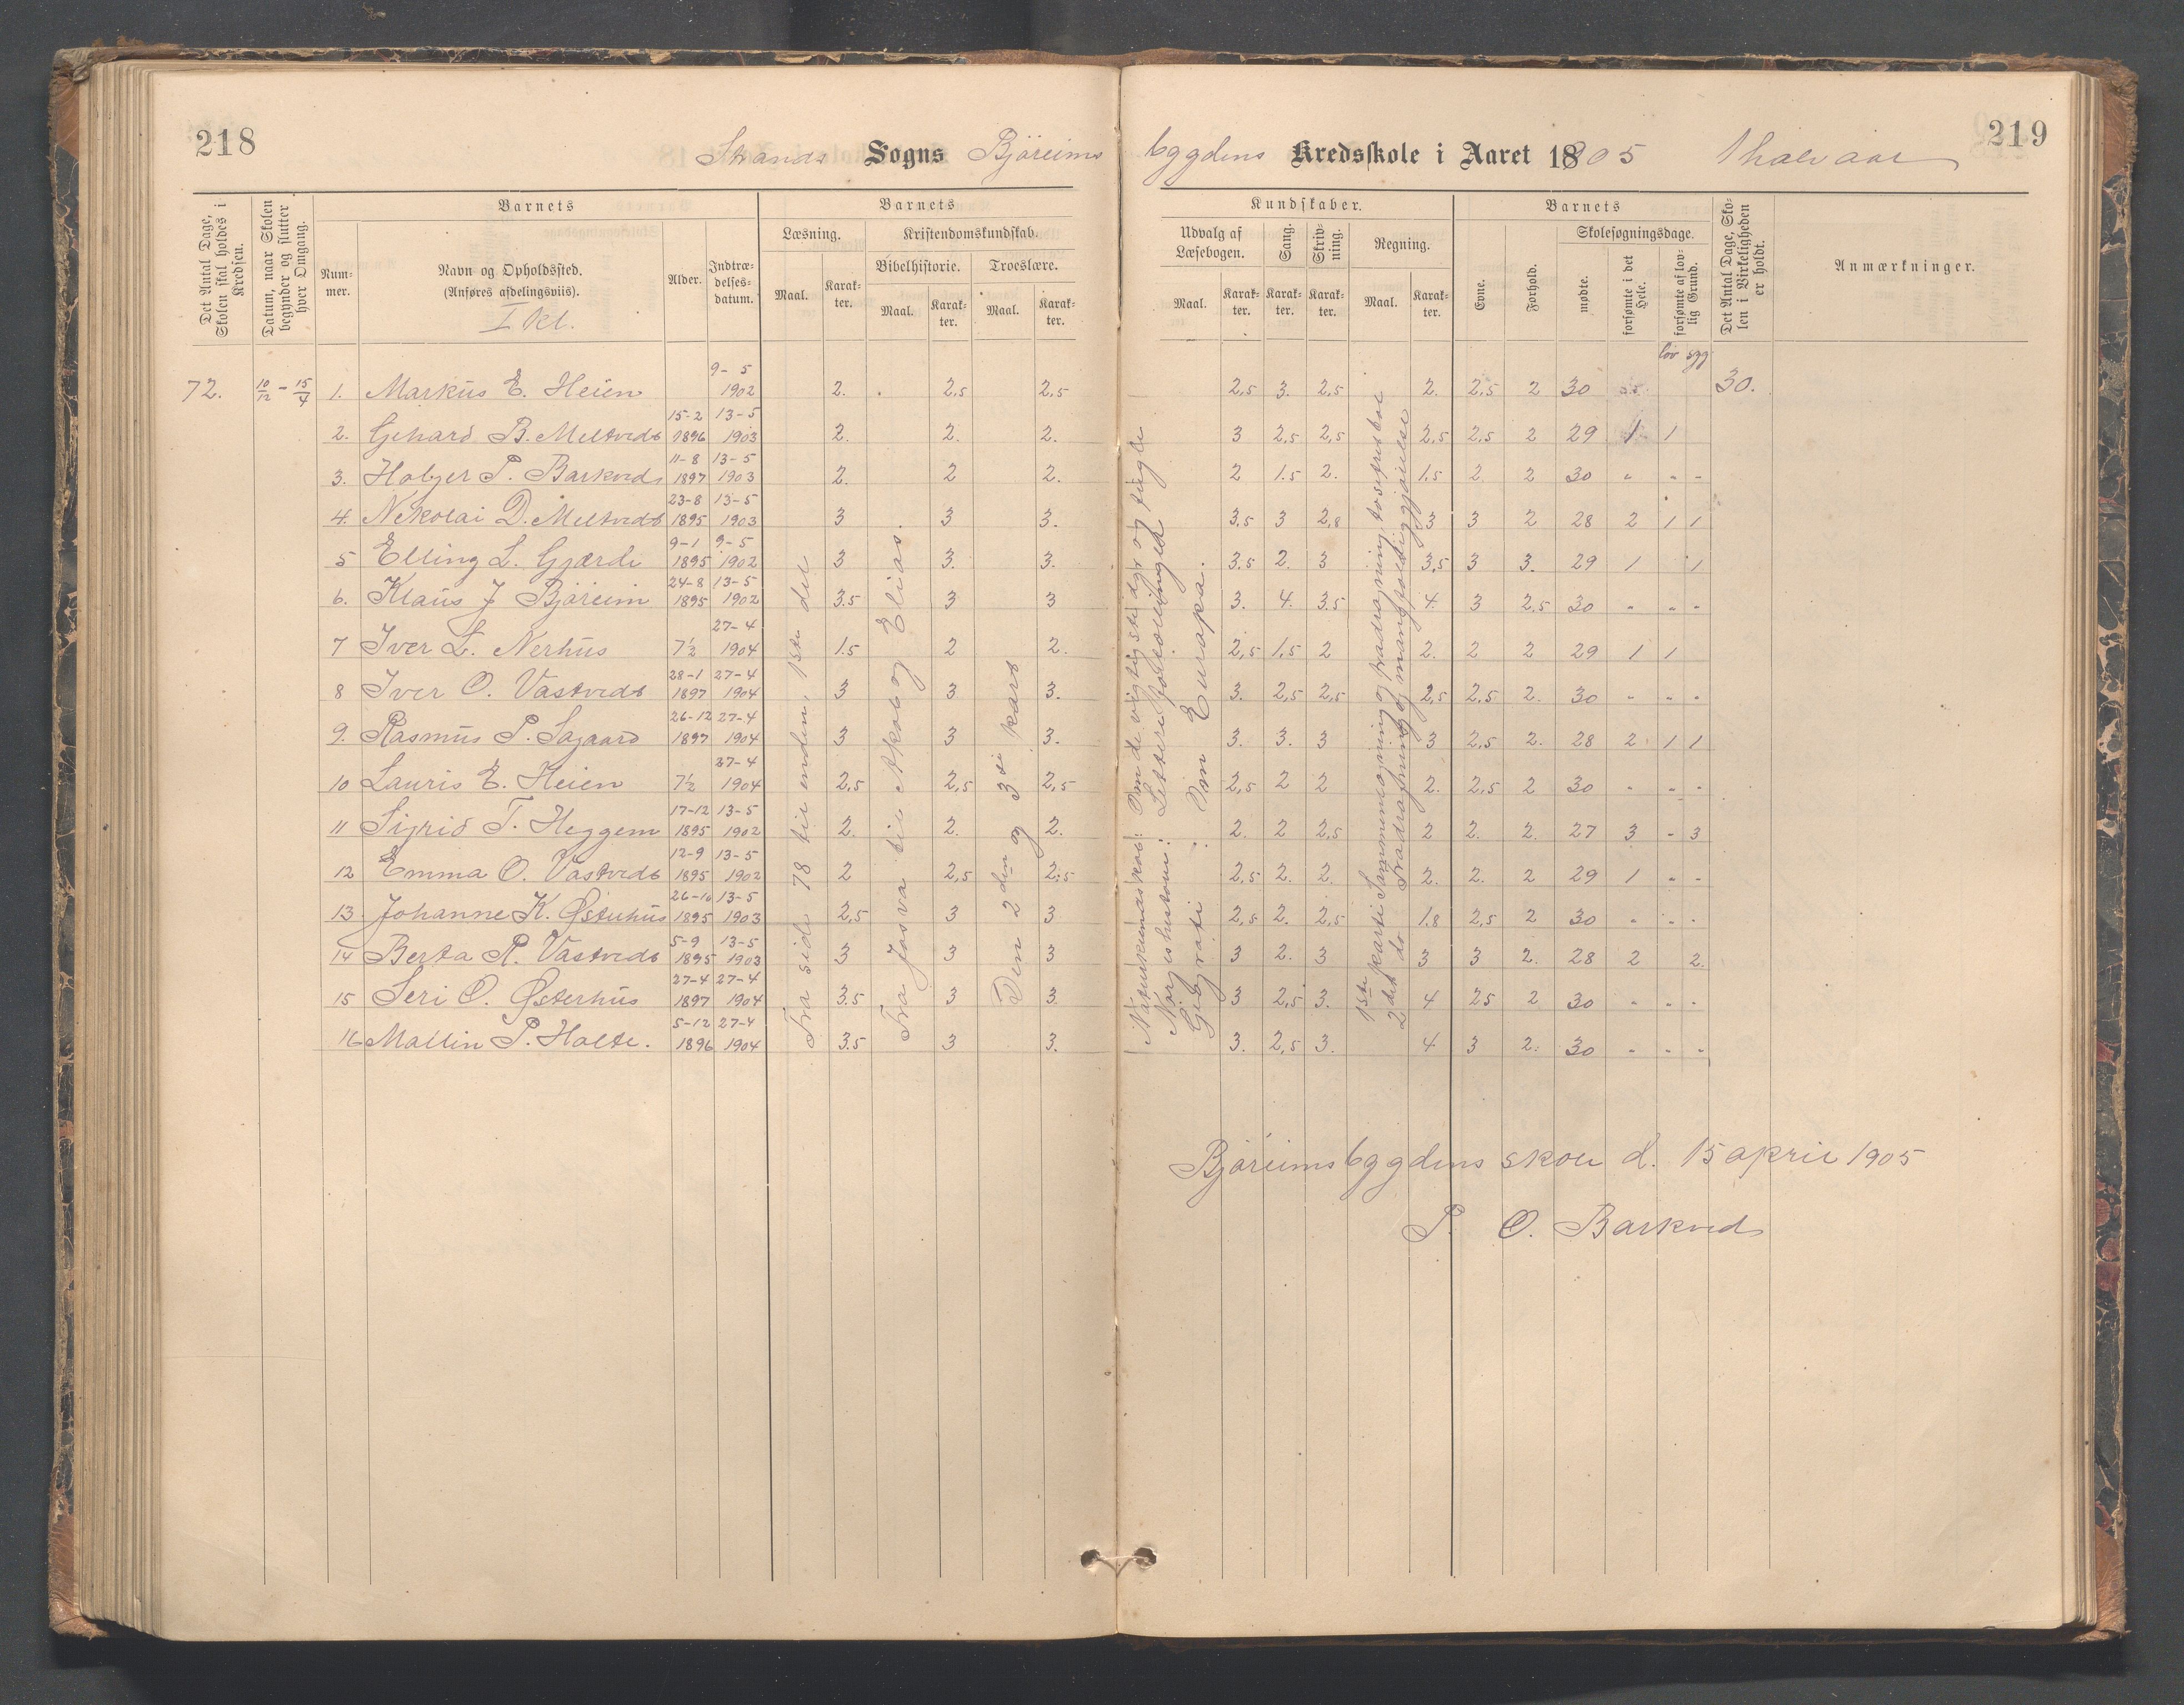 218
Strands Sogns Björeims
bygdens Kredsskole i Aaret 1905 1 halvaar
219
Det Antal Dage, Skolen skal holdes i Kredsen.
Datum, naar Skolen begynder og slutter hver Omgang.
Barnets
Nummer.
Navn og Opholdssted.
(Anføres afdelingsviis).
I Kl.
Alder.
Indtrædelsesdatum.
Barnets
Læsning.
Maal.
Karakter.
Kristendomskundskab.
Bibelhistorie.
Maal.
Karakter.
Troeslære.
Maal.
Karakter.
Kundskaber.
Udvalg af Læsebogen.
Maal.
Karakter.
Sang.
Karakter.
Skrivning.
Karakter.
Regning.
Maal.
Karakter.
Barnets
Evne.
Forhold.
Skolesøgningsdage.
mødte.
forsømte i det Hele.
forsømte af lovlig Grund.
Det Antal Dage, Skolen i Virkeligheden er holdt.
Anmærkninger.
lov syg
72. 10/12 - 15/4 1. Markus E. Heien 9-5 1902 2. 2,5 2,5 2,5 3. 2,5 2. 2,5 2 30 30.
2. Gehard B. Meltveds 15-2 1896 13-5 1903 2. 2. 2. 3 2,5 2,5 2,5 2,5 2 29 1 1
3. Holger P. Barkveds 11-8 1897 13-5 1903 2. 2 2. 2 1.5 2. 1,5 2. 2 30 " " -
4. Nekolai D. Meltveds 23-8 1895 13-5 1903 3 3 3. 3,5 3 2,8 3 3 2 28 2 1 1
5 Elling L. Gjærde 9-1 1895 9-5 1902 3 3. 3. 3.5 2. 3 3,5 3 3. 29 1 1
6. Klaus J Björeim 24-8 1895 13-5 1902 3.5 3 3 3. 4. 3.5 4. 3 2,5 30 " " -
7 Iver L. Nerhus 7½ 27-4 1904 1.5 2 2. 2,5 1,5 2 2. 2 2 29 1 1
8 Iver O. Vastveds 28-1 1897 27-4 1904 3 3 3. 3. 2,5 2,5 2,5 2,5 2. 30 " - -
9. Rasmus P. Sagaard 26-12 1897 27-4 1904 3 3 3. 3. 3. 3 3 2,5 2. 28 2 1 1
10 Lauris E. Heien 7½ 27-4 1904 2,5 2,5 2,5 2,5 2 2 2. 2,5 2 30 " - -
11 Sigrid T. Heggem 17-12 1895 13-5 1902 2. 2. 2. 2. 2 2,5 2 2. 2. 27 3 - 3
12 Emma O. Vastveds 12-9 1895 13-5 1902 2 2,5 2.5 2,5 2. 2. 2. 2. 2 29 1 - -
13. Johanne K. Østerhus 26-10 1895 13-5 1903 2,5 3 3 2,5 2. 2,5 1.8 2,5 2 30 " - -
14 Berta R. Vastveds 5-9 1895 13-5 1903 3 3 3 3 2. 3 3 3 2. 28 2 2.
15 Seri O. Østerhus 27-4 1897 27-4 1904 3.5 3 3. 3 2,5 3. 4 25 2 30 " - -
16 Mallin P. Holte. 5-12 1896 27-4 1904 3.5 3 3. 3. 2,5 3. 4 3 2. 30 " - -
Fra side 78 til enden, 1ste del
Fra Josva til Akab og Elias.
Den 2den og 3die part
Naturkundskab: Om de vigtigste dyr og fugle
Norges historie: Lettere fortællinger
Geografi: Om Europa.
1ste parti Sammenlægning og fradragning, tosifret tal
2det do Fradragning og mangfoldiggjørelse
Björeimsbygdens skole d. 15 april 1905
P. O. Barkved